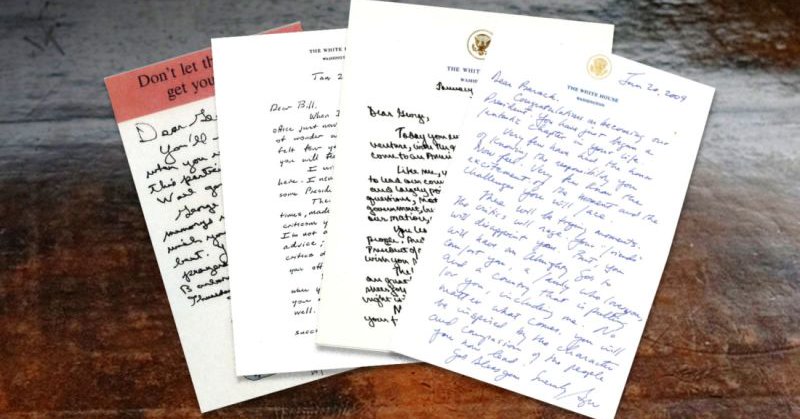 Don't let th
get you
Dear Geo
You'll
when you
This partic
Want you
George
memory
wish you
but.
praying
Barbara
Thursday
THE WHITE H
WASHINGTO
Jan 2
Dear Bill,
When I
office just now
of wonder a
felt
you will fee
I wi
here. I nev
some Presid
The
times, made
criticism y
I'm not a
advice;
critics d
you off
you
your
well.
succ
THE WHIT
WASHI
January
Dear Georg,
Today you em
venture, with the g
come to an Ameri
Like me, y
to lead our cou
and largely po
questions, mat
government, be
our nation,
You lea
people, An
President of
wish you
The
sheer joy
night is
your f
THE WHITE HOUSE
WASHINGTON
Jan 20, 2009
Dear Barack,
Congratulations on becoming our
President. You have just begun a
fantastic chapter in your life.
Very few have had the honor
of knowing the responsibility you
now feel. Very few know the
excitement of the moment and the
challenges you will face.
There will be trying moments.
The critics will rage. Your "friends"
will disappoint you. But, you
will have an Almighty God to
comfort you, a family who loves you,
and a country that is pulling
for you, including me. No
matter what comes, you will
be inspired by the character
and compassion of the people
you now lead.
God bless you. Sincerely,